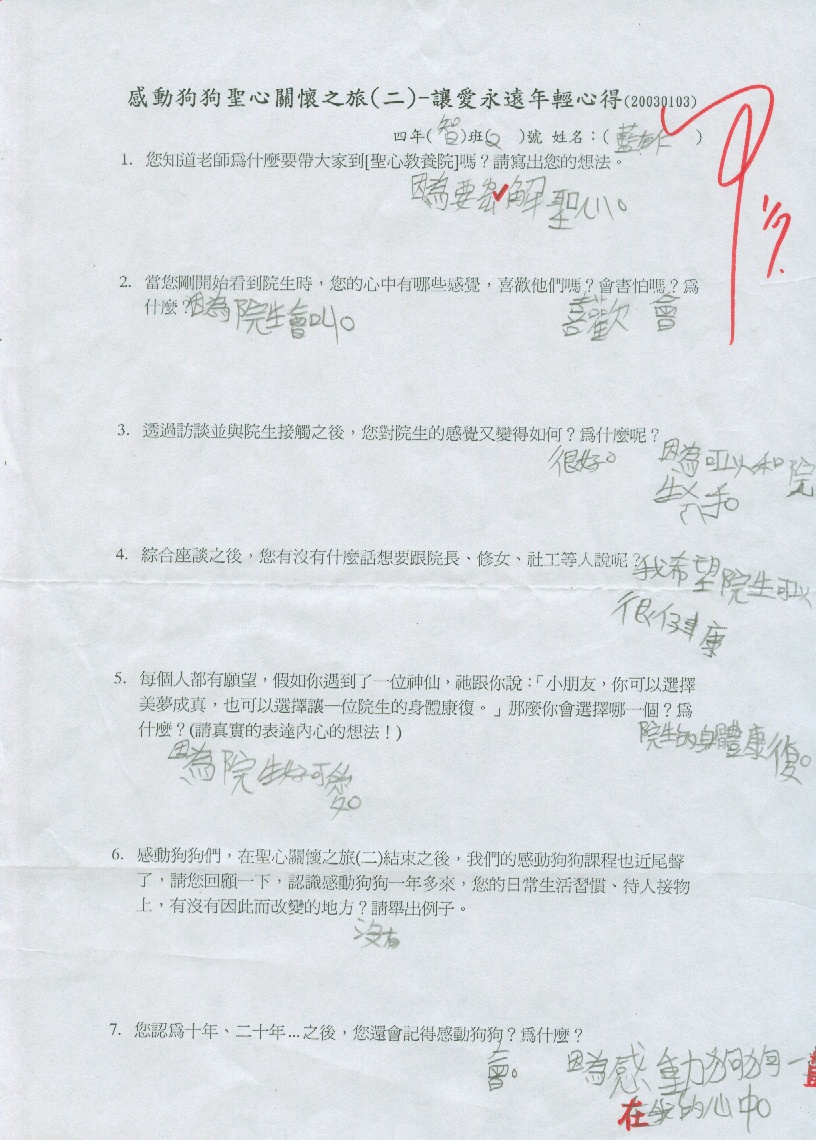 感動狗狗聖心關懷之旅(二)-讓愛永遠年輕心得(20030103)
四年(智)班( )號 姓名：(藍 仁 )
1. 您知道老師爲什麼要帶大家到[聖心教養院]嗎？請寫出您的想法。
因為要 解聖心。
甲
1/7.
2. 當您剛開始看到院生時，您的心中有哪些感覺，喜歡他們嗎？會害怕嗎？爲
什麼？因為院生會叫。 喜歡 會
3. 透過訪談並與院生接觸之後，您對院生的感覺又變得如何？爲什麼呢？
很好。 因為可以和院
生 手。
4. 綜合座談之後，您有沒有什麼話想要跟院長、修女、社工等人說呢？我希望院生可以
很健康
5. 每個人都有願望，假如你遇到了一位神仙，祂跟你說：「小朋友，你可以選擇
美夢成真，也可以選擇讓一位院生的身體康復。」那麼你會選擇哪一個？爲
什麼？(請真實的表達內心的想法！) 院生的身體康復。
因為院生好可
。
6. 感動狗狗們，在聖心關懷之旅(二)結束之後，我們的感動狗狗課程也近尾聲
了，請您回顧一下，認識感動狗狗一年多來，您的日常生活習慣、待人接物
上，有沒有因此而改變的地方？請舉出例子。
沒有
7. 您認爲十年、二十年...之後，您還會記得感動狗狗？爲什麼？
會。 因為感動狗狗一直
在我的心中。